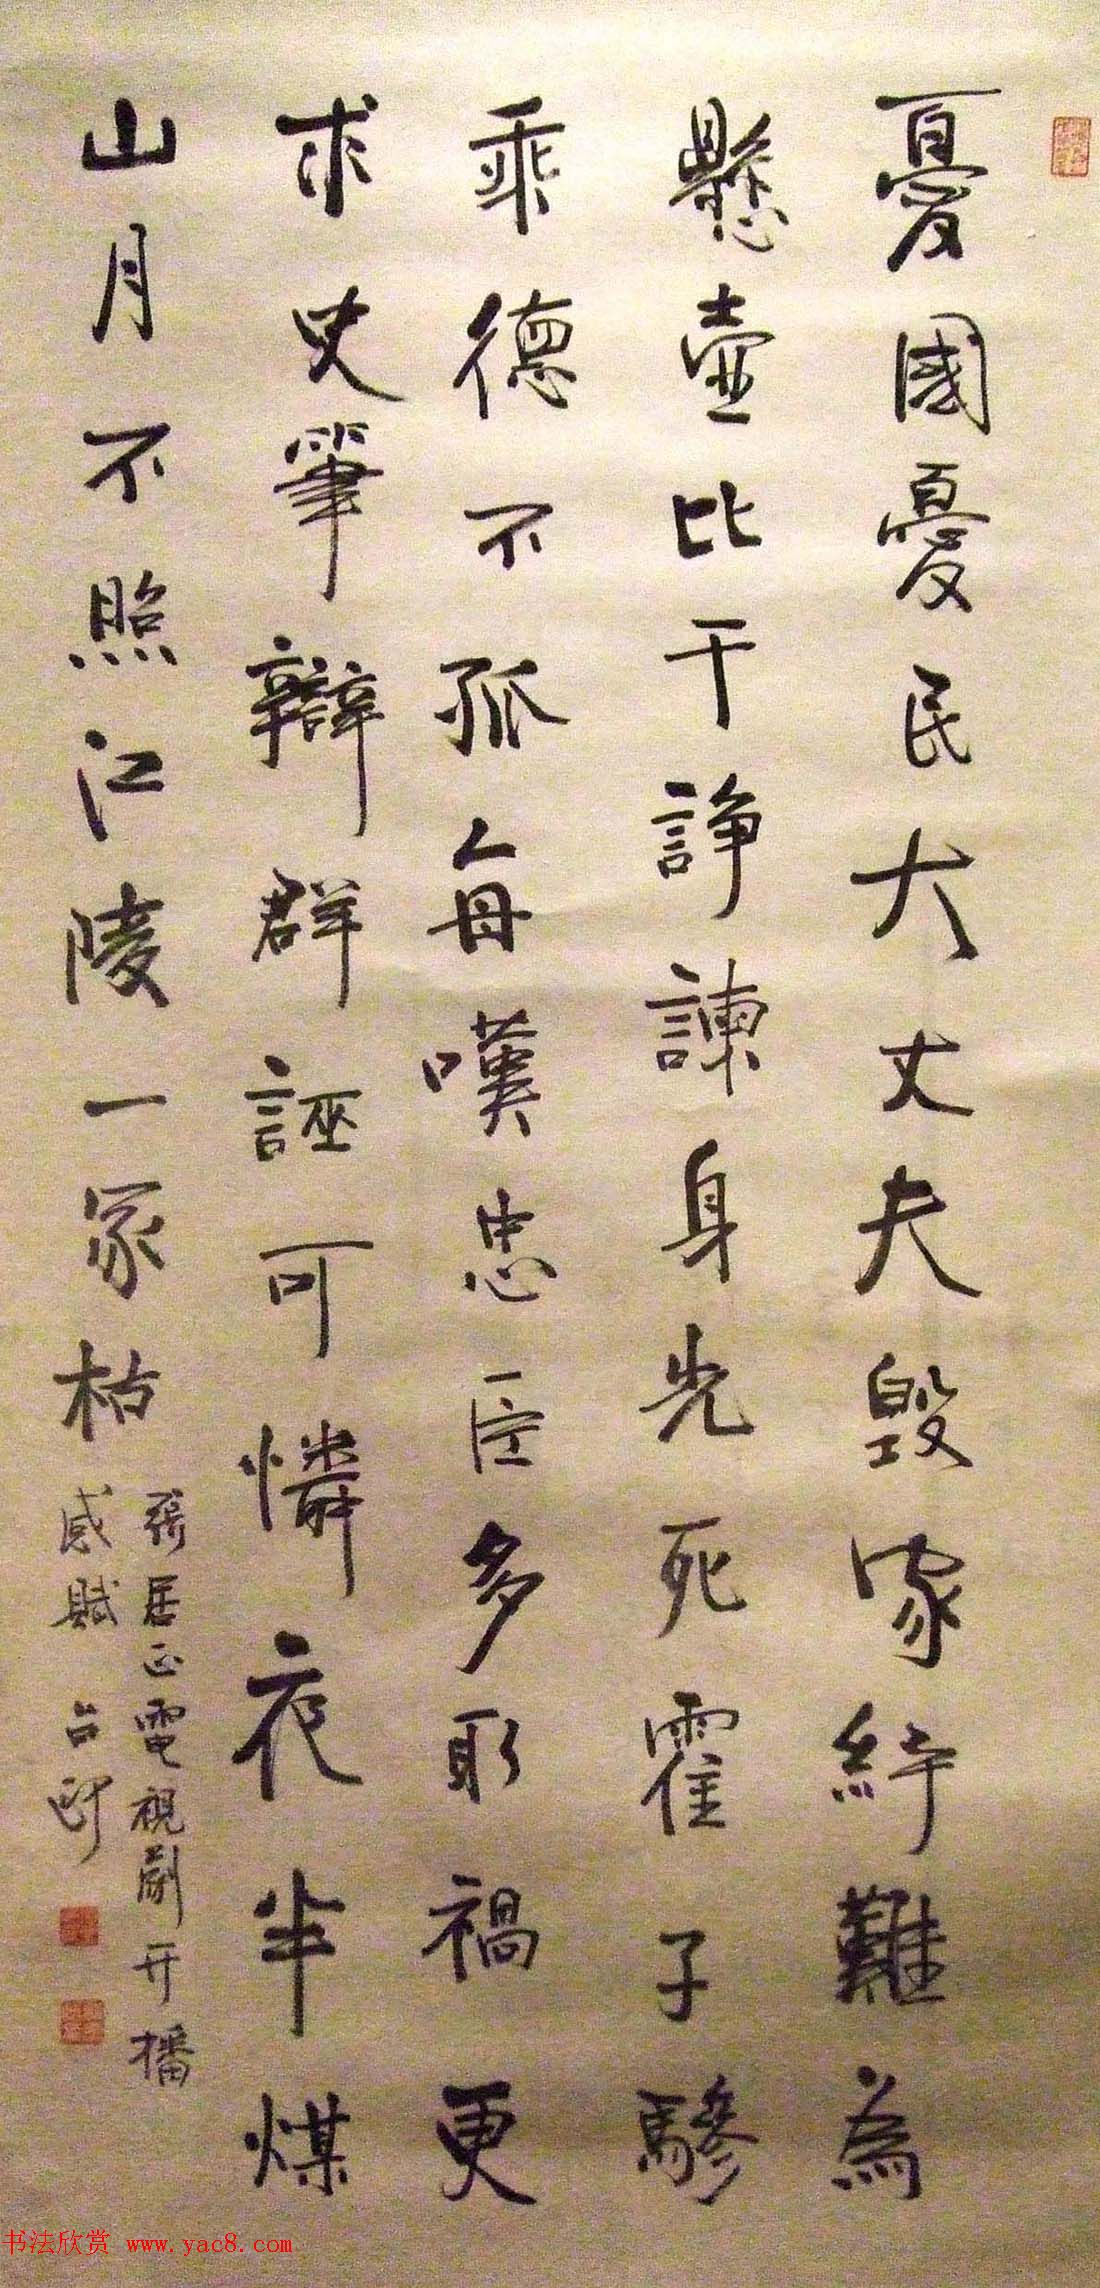 憂國憂民大丈夫毀家紓難為
懸壺比干諍諫身先死霍子驂
乘德不孤每嘆忠臣多取禍更
求史筆辯群誣可憐夜半煤
山月不照江陵一冢枯
張居正電視劇开播
感賦
书法欣赏 www.yac8.com